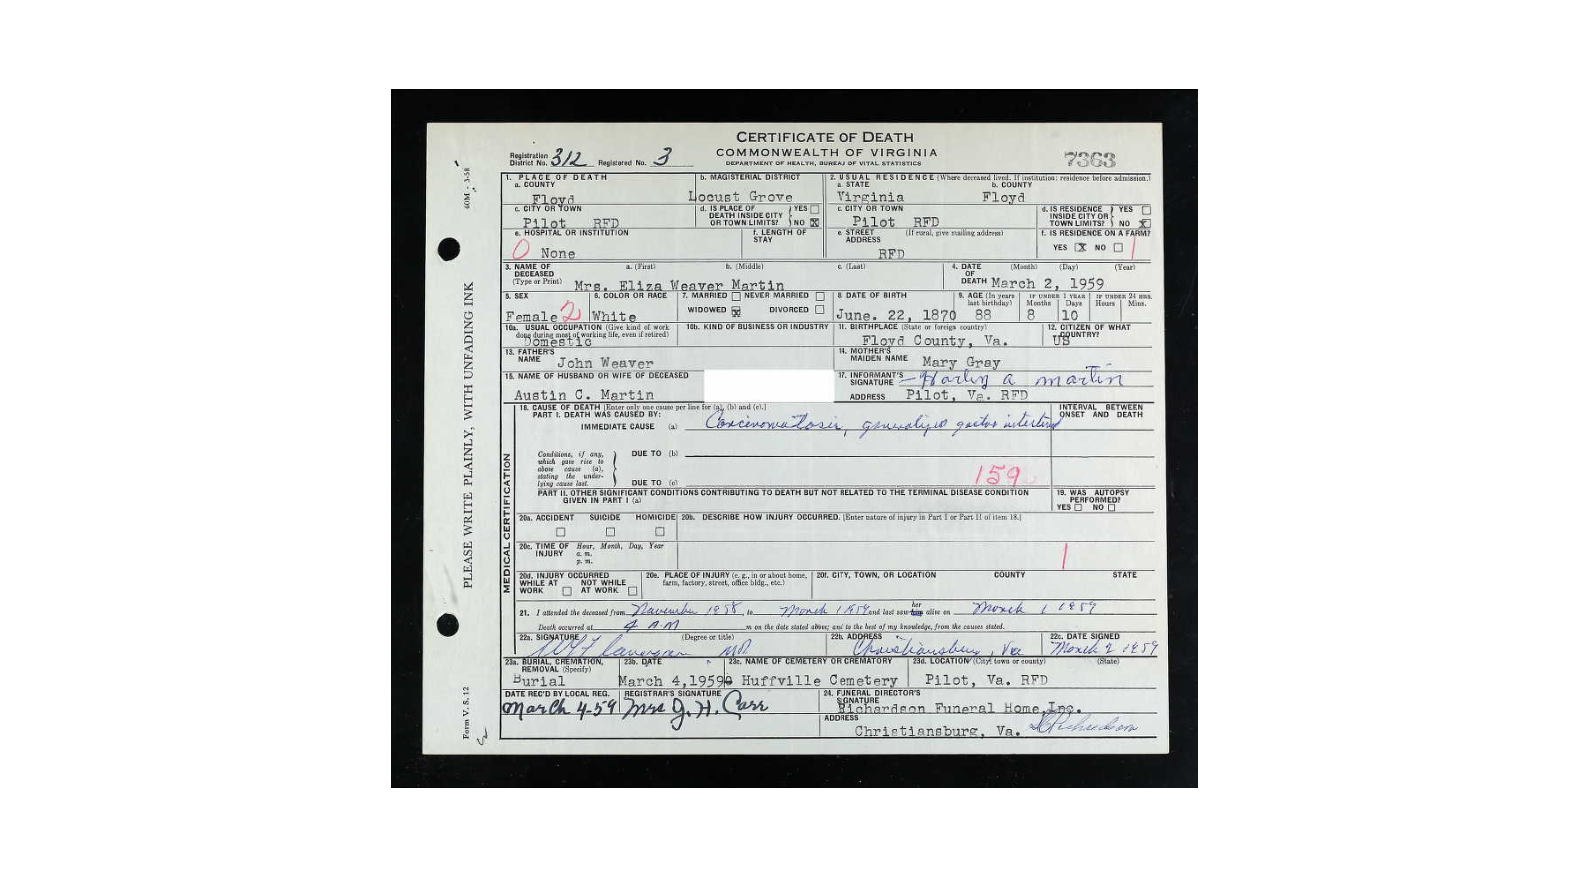 CERTIFICATE OF DEATH
COMMONWEALTH OF VIRGINIA
DEPARTMENT OF HEALTH, BUREAU OF VITAL STATISTICS
Registration District No. 312 Registered No. 3
7363
60M - 3-58
PLEASE WRITE PLAINLY, WITH UNFADING INK
Form V. S. 12
1. PLACE OF DEATH
a. COUNTY
Floyd
b. MAGISTERIAL DISTRICT
Locust Grove
2. USUAL RESIDENCE (Where deceased lived. If institution: residence before admission.)
a. STATE b. COUNTY
Virginia Floyd
c. CITY OR TOWN
Pilot RFD
d. IS PLACE OF DEATH INSIDE CITY OR TOWN LIMITS? YES NO X
c. CITY OR TOWN
Pilot RFD
d. IS RESIDENCE INSIDE CITY OR TOWN LIMITS? YES NO X
e. HOSPITAL OR INSTITUTION
0 None
f. LENGTH OF STAY
e. STREET ADDRESS (If rural, give mailing address)
RFD
f. IS RESIDENCE ON A FARM?
YES X NO 1
3. NAME OF DECEASED (Type or Print) a. (First) b. (Middle) c. (Last)
Mrs. Eliza Weaver Martin
4. DATE OF DEATH (Month) (Day) (Year)
March 2, 1959
5. SEX
Female 2
6. COLOR OR RACE
White
7. MARRIED NEVER MARRIED
WIDOWED X DIVORCED
8 DATE OF BIRTH
June. 22, 1870
9. AGE (In years last birthday)
88
IF UNDER 1 YEAR Months Days
8 10
IF UNDER 24 HRS. Hours Mins.
10a. USUAL OCCUPATION (Give kind of work done during most of working life, even if retired)
Domestic
10b. KIND OF BUSINESS OR INDUSTRY
11. BIRTHPLACE (State or foreign country)
Floyd County, Va.
12. CITIZEN OF WHAT COUNTRY?
US
13. FATHER'S NAME
John Weaver
14. MOTHER'S MAIDEN NAME
Mary Gray
15. NAME OF HUSBAND OR WIFE OF DECEASED
Austin C. Martin
17. INFORMANT'S SIGNATURE Harley A Martin
ADDRESS Pilot, Va. RFD
18. CAUSE OF DEATH [Enter only one cause per line for (a), (b) and (c).]
PART I. DEATH WAS CAUSED BY:
IMMEDIATE CAUSE (a) Carcinomatosis, generalized gastro intestinal
INTERVAL BETWEEN ONSET AND DEATH
Conditions, if any, which gave rise to above cause (a), stating the underlying cause last.
DUE TO (b)
DUE TO (c)
159
PART II. OTHER SIGNIFICANT CONDITIONS CONTRIBUTING TO DEATH BUT NOT RELATED TO THE TERMINAL DISEASE CONDITION GIVEN IN PART I (a)
19. WAS AUTOPSY PERFORMED?
YES NO
MEDICAL CERTIFICATION
20a. ACCIDENT SUICIDE HOMICIDE
20b. DESCRIBE HOW INJURY OCCURRED. [Enter nature of injury in Part I or Part II of item 18.]
20c. TIME OF INJURY Hour, Month, Day, Year
a. m.
p. m.
1
20d. INJURY OCCURRED
WHILE AT WORK NOT WHILE AT WORK
20e. PLACE OF INJURY (e. g., in or about home, farm, factory, street, office bldg., etc.)
20f. CITY, TOWN, OR LOCATION COUNTY STATE
21. I attended the deceased from November 1958, to March 1 1959 and last saw her alive on March 1 1959
Death occurred at 4 A.M m on the date stated above; and to the best of my knowledge, from the causes stated.
22a. SIGNATURE (Degree or title)
MD.
22b. ADDRESS
Christiansburg, Va
22c. DATE SIGNED
March 2 1959
23a. BURIAL, CREMATION, REMOVAL (Specify)
Burial
23b. DATE
March 4,1959
23c. NAME OF CEMETERY OR CREMATORY
Huffville Cemetery
23d. LOCATION (City, town or county) (State)
Pilot, Va. RFD
DATE REC'D BY LOCAL REG.
March 4-59
REGISTRAR'S SIGNATURE
Mrs J. H. Carr
24. FUNERAL DIRECTOR'S SIGNATURE
Richardson Funeral Home,Inc.
ADDRESS
Christiansburg, Va.
Richardson